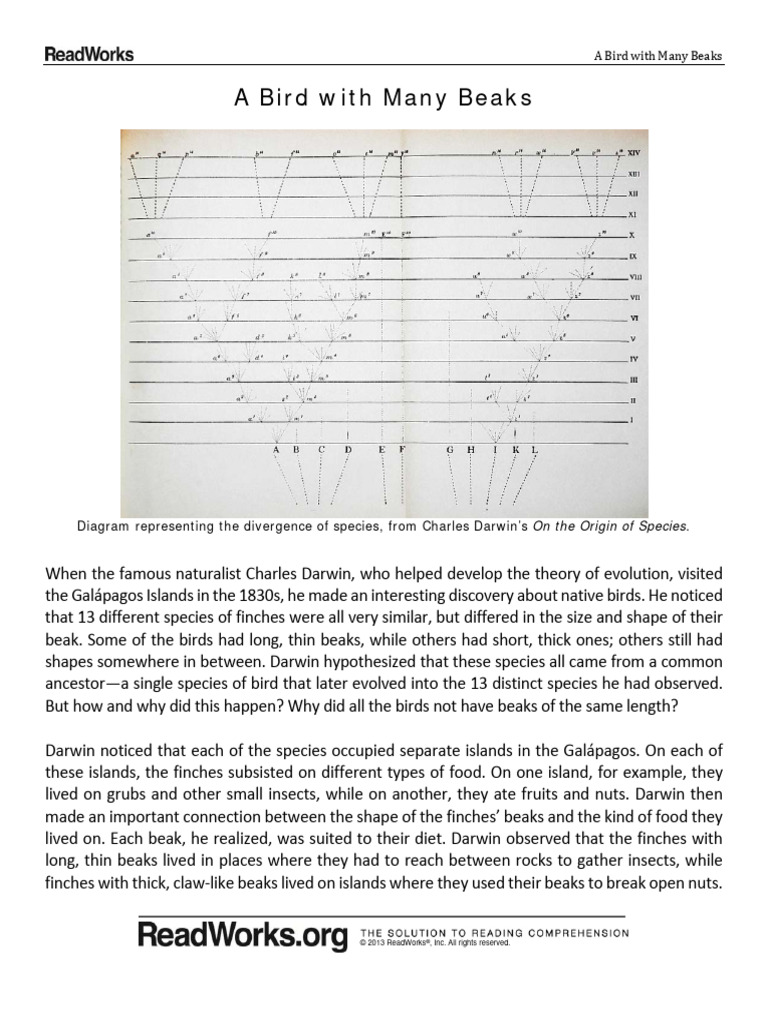 ReadWorks
A Bird with Many Beaks
A Bird with Many Beaks
XIV
XIII
XII
XI
X
IX
VIII
VII
VI
V
IV
III
II
I
A B C D E F G H I K L
Diagram representing the divergence of species, from Charles Darwin's On the Origin of Species.
When the famous naturalist Charles Darwin, who helped develop the theory of evolution, visited
the Galápagos Islands in the 1830s, he made an interesting discovery about native birds. He noticed
that 13 different species of finches were all very similar, but differed in the size and shape of their
beak. Some of the birds had long, thin beaks, while others had short, thick ones; others still had
shapes somewhere in between. Darwin hypothesized that these species all came from a common
ancestor—a single species of bird that later evolved into the 13 distinct species he had observed.
But how and why did this happen? Why did all the birds not have beaks of the same length?
Darwin noticed that each of the species occupied separate islands in the Galápagos. On each of
these islands, the finches subsisted on different types of food. On one island, for example, they
lived on grubs and other small insects, while on another, they ate fruits and nuts. Darwin then
made an important connection between the shape of the finches' beaks and the kind of food they
lived on. Each beak, he realized, was suited to their diet. Darwin observed that the finches with
long, thin beaks lived in places where they had to reach between rocks to gather insects, while
finches with thick, claw-like beaks lived on islands where they used their beaks to break open nuts.
ReadWorks.org
THE SOLUTION TO READING COMPREHENSION
© 2013 ReadWorks®, Inc. All rights reserved.